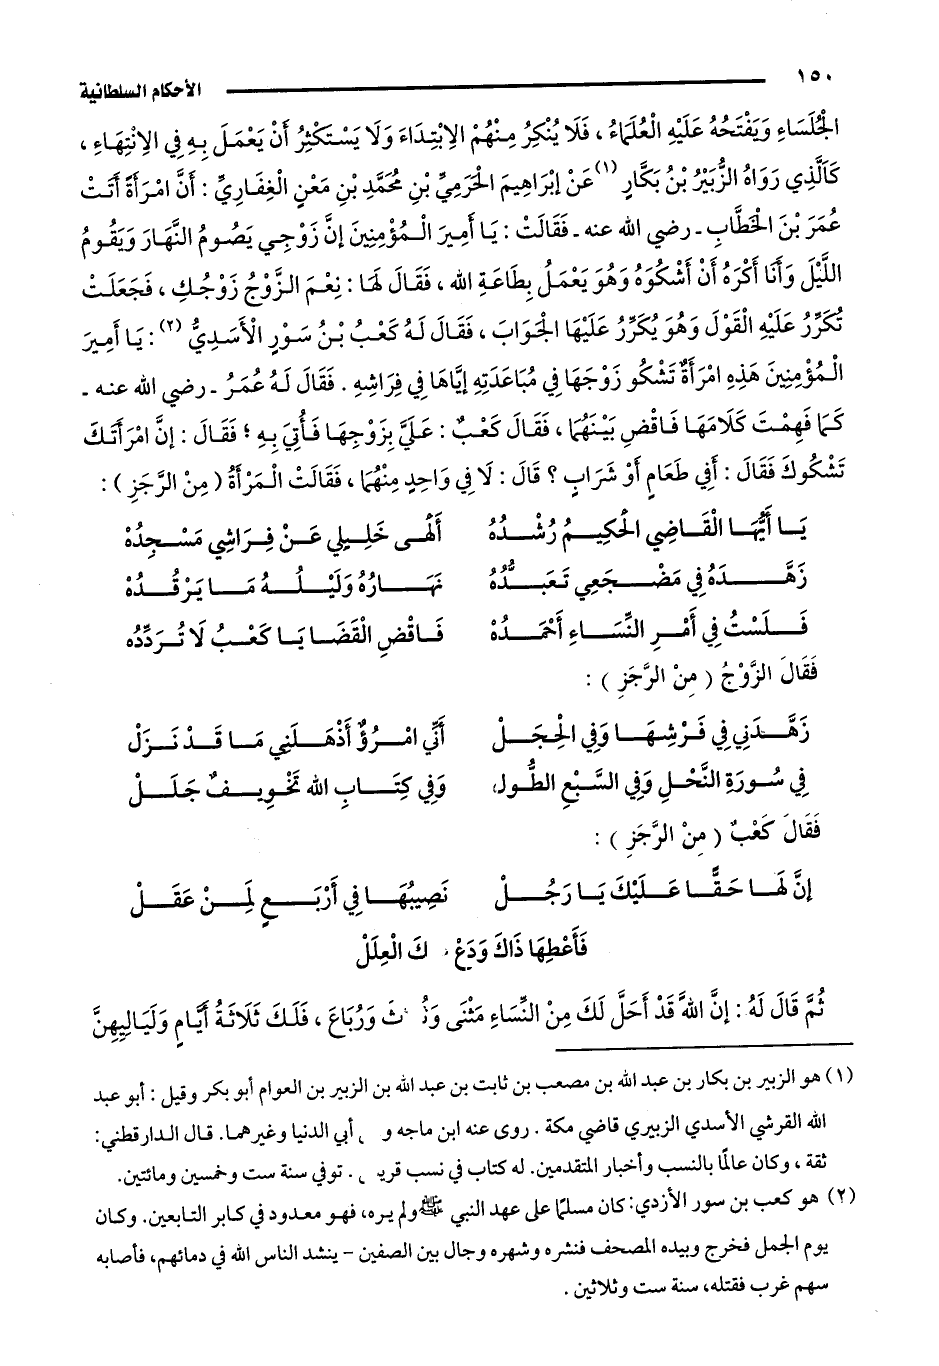 ١٥٠
الأحكام السلطانية
الْجُلَسَاءِ وَيَفْتَحُهُ عَلَيْهِ الْعُلَمَاءُ ، فَلَا يُنْكِرُ مِنْهُمْ الِابْتِدَاءَ وَلَا يَسْتَكْثِرُ أَنْ يَعْمَلَ بِهِ فِي الِانْتِهَاءِ ،
كَالَّذِي رَوَاهُ الزُّبَيْرُ بْنُ بَكَّارٍ (١) عَنْ إبْرَاهِيمَ الْحَرَمِيِّ بْنِ مُحَمَّدِ بْنِ مَعْنٍ الْغِفَارِيِّ : أَنَّ امْرَأَةً أَتَتْ
عُمَرَ بْنَ الْخَطَّابِ ـ رضي الله عنه ـ فَقَالَتْ : يَا أَمِيرَ الْمُؤْمِنِينَ إنَّ زَوْجِي يَصُومُ النَّهَارَ وَيَقُومُ
اللَّيْلَ وَأَنَا أَكْرَهُ أَنْ أَشْكُوَهُ وَهُوَ يَعْمَلُ بِطَاعَةِ الله ، فَقَالَ لَهَا : نِعْمَ الزَّوْجُ زَوْجُكِ ، فَجَعَلَتْ
تُكَرِّرُ عَلَيْهِ الْقَوْلَ وَهُوَ يُكَرِّرُ عَلَيْهَا الْجَوَابَ ، فَقَالَ لَهُ كَعْبُ بْنُ سَوْرٍ الْأَسَدِيُّ (٢) : يَا أَمِيرَ
الْمُؤْمِنِينَ هَذِهِ امْرَأَةٌ تَشْكُو زَوْجَهَا فِي مُبَاعَدَتِهِ إيَّاهَا فِي فِرَاشِهِ . فَقَالَ لَهُ عُمَرُ ـ رضي الله عنه ـ
كَمَا فَهِمْتَ كَلَامَهَا فَاقْضِ بَيْنَهُمَا ، فَقَالَ كَعْبٌ : عَلَيَّ بِزَوْجِهَا فَأُتِيَ بِهِ ؛ فَقَالَ : إنَّ امْرَأَتَكَ
تَشْكُوكَ فَقَالَ : أَفِي طَعَامٍ أَوْ شَرَابٍ ؟ قَالَ : لَا فِي وَاحِدٍ مِنْهُمَا ، فَقَالَتْ الْمَرْأَةُ ( مِنْ الرَّجَزِ ) :
يَا أَيُّهَا الْقَاضِي الْحَكِيمُ رُشْدُهُ أَلْهَى خَلِيلِي عَنْ فِرَاشِي مَسْجِدُهْ
زَهَّدَهُ فِي مَضْجَعِي تَعَبُّدُهُ نَهَارُهُ وَلَيْلُهُ مَا يَرْقُدُهْ
فَلَسْتُ فِي أَمْرِ النِّسَاءِ أَحْمَدُهْ فَاقْضِ الْقَضَا يَا كَعْبُ لَا تُرَدِّدُه
فَقَالَ الزَّوْجُ ( مِنْ الرَّجَزِ ) :
زَهَّدَنِي فِي فَرْشِهَا وَفِي الْحَجَلْ أَنِّي امْرُؤٌ أَذْهَلَنِي مَا قَدْ نَزَلْ
فِي سُورَةِ النَّحْلِ وَفِي السَّبْعِ الطُّوَلِ، وَفِي كِتَابِ الله تَخْوِيفٌ جَلَلْ
فَقَالَ كَعْبٌ ( مِنْ الرَّجَزِ ) :
إنَّ لَهَا حَقًّا عَلَيْكَ يَا رَجُلْ نَصِيبُهَا فِي أَرْبَعٍ لِمَنْ عَقَلْ
فَأَعْطِهَا ذَاكَ وَدَعْ كَ الْعِلَلْ
ثُمَّ قَالَ لَهُ : إنَّ اللهَ قَدْ أَحَلَّ لَكَ مِنْ النِّسَاءِ مَثْنَى وَرُبَاعَ ، فَلَكَ ثَلَاثَةُ أَيَّامٍ وَلَيَالِيهِنَّ
(١) هو الزبير بن بكار بن عبد الله بن مصعب بن ثابت بن عبد الله بن الزبير بن العوام أبو بكر وقيل : أبو عبد
الله القرشي الأسدي الزبيري قاضي مكة . روى عنه ابن ماجه و أبي الدنيا وغيرهما. قال الدارقطني:
ثقة ، وكان عالمًا بالنسب وأخبار المتقدمين. له كتاب في نسب توفي سنة ست وخمسين ومائتين.
(٢) هو كعب بن سور الأزدي: كان مسلمًا على عهد النبي ﷺ ولم يره، فهو معدود في كابر التابعين. وكان
يوم الجمل فخرج وبيده المصحف فنشره وشهره وجال بين الصفين – ينشد الناس الله في دمائهم، فأصابه
سهم غرب فقتله، سنة ست وثلاثين .